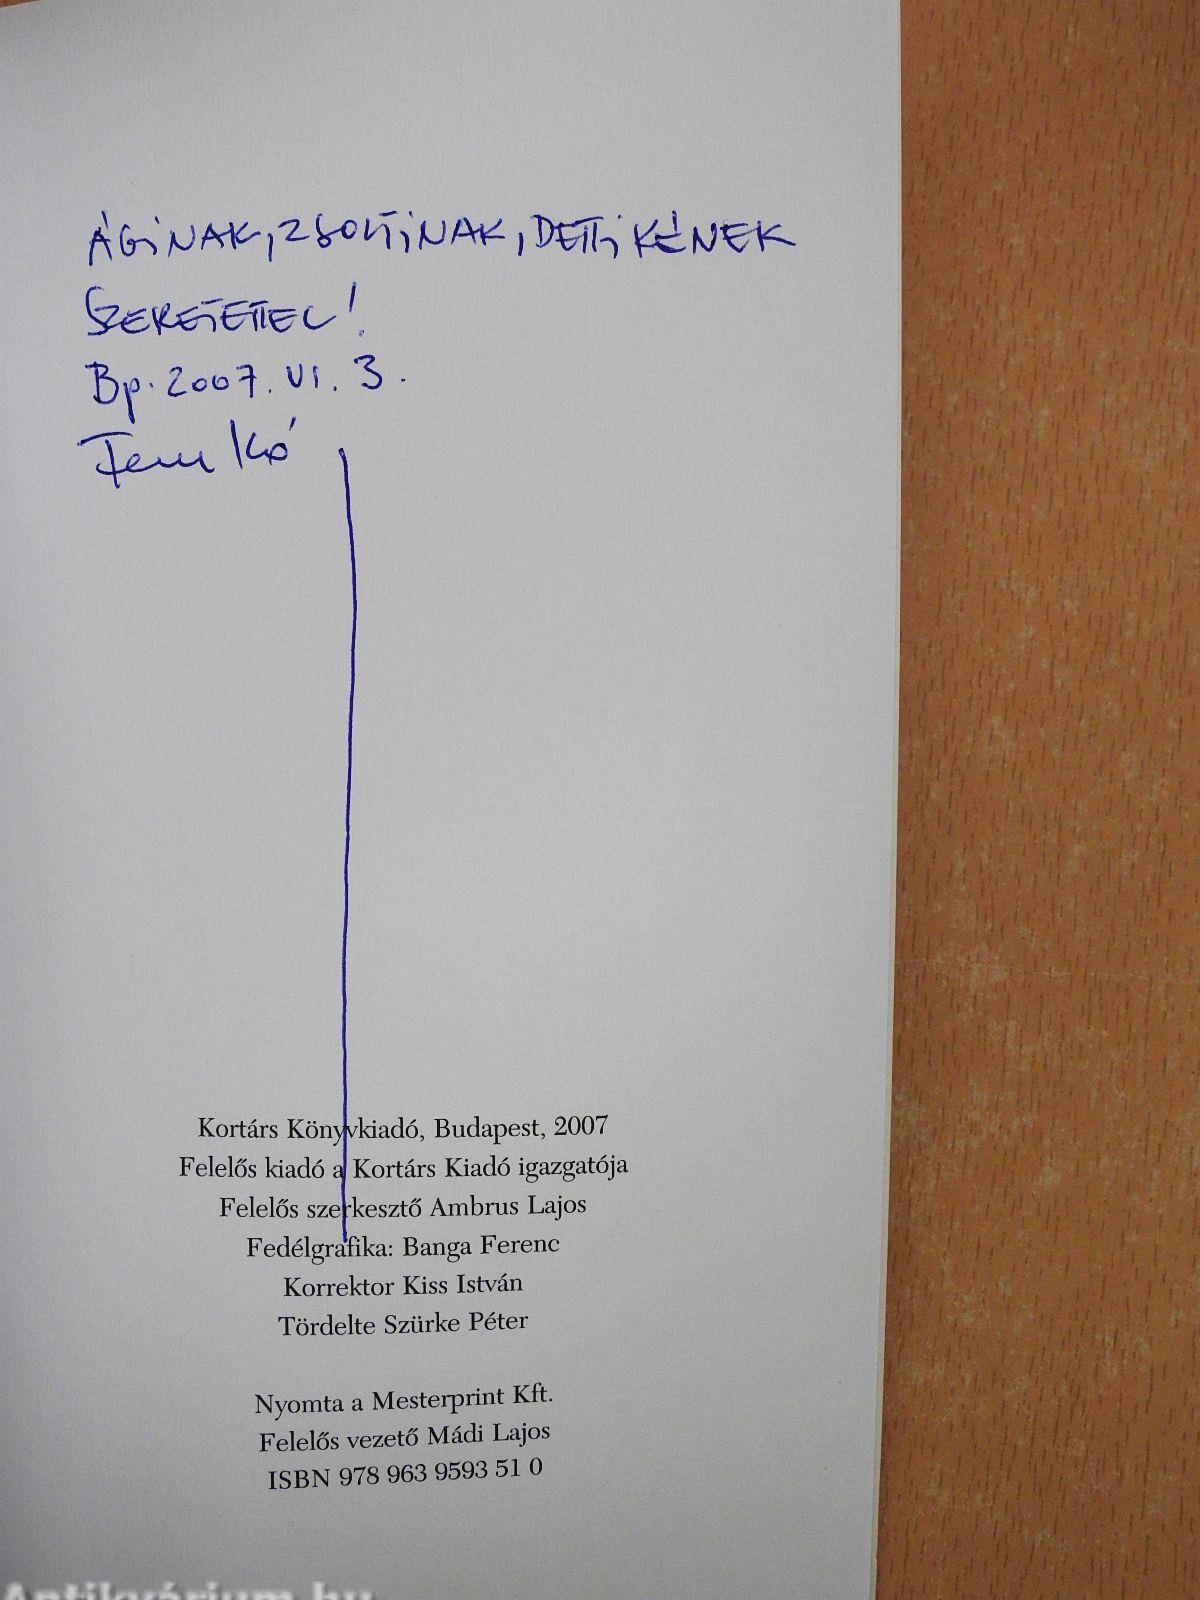 ÁGINAK, ZSOLTINAK, DETTIKÉNEK
SZERETETTEL!
Bp. 2007. VI. 3.
Kortárs Könyvkiadó, Budapest, 2007
Felelős kiadó a Kortárs Kiadó igazgatója
Felelős szerkesztő Ambrus Lajos
Fedélgrafika: Banga Ferenc
Korrektor Kiss István
Tördelte Szürke Péter
Nyomta a Mesterprint Kft.
Felelős vezető Mádi Lajos
ISBN 978 963 9593 51 0
Antikvárium.hu